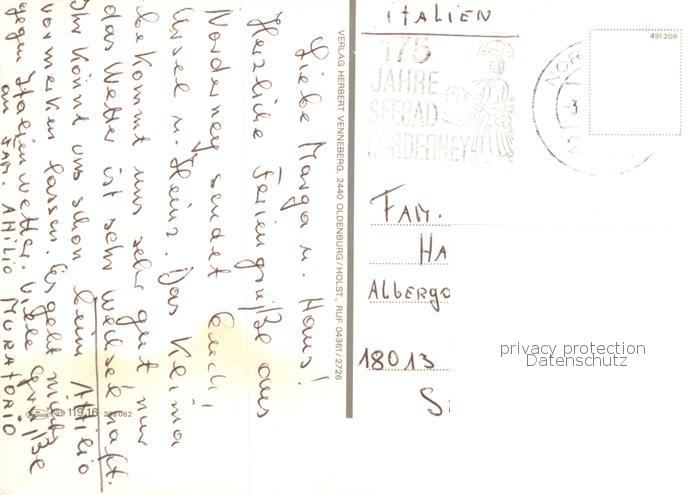 Liebe Marga u. Hans!
Herzliche Feriengrüße aus
Norderney sendet Euch,
Ursel u. Heinz. Das Klima
bekommt uns sehr gut nur
das Wetter ist sehr wechselhaft.
Ihr könnt uns schon beim Attilio
vormerken lassen. Es geht nichts
gegen Italienwetter. Viele Grüße
an FAM. AttiLiO MURATORIO
119,16
VERLAG HERBERT VENNEBERG, 2440 OLDENBURG/HOLST., RUF 04361/2726
iTALiEN
175
JAHRE
SEEBAD
NORDERNEY
NOR
491208
FAM.
HA
ALbergo
18013
privacy protection
Datenschutz